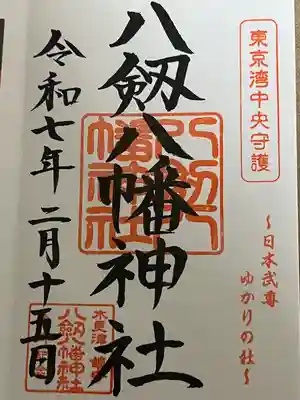 東京湾中央守護
～日本武尊
ゆかりの社～
八剱八幡神社
八剱八幡神社
令和七年二月十五日
木更津
八剱八幡神社